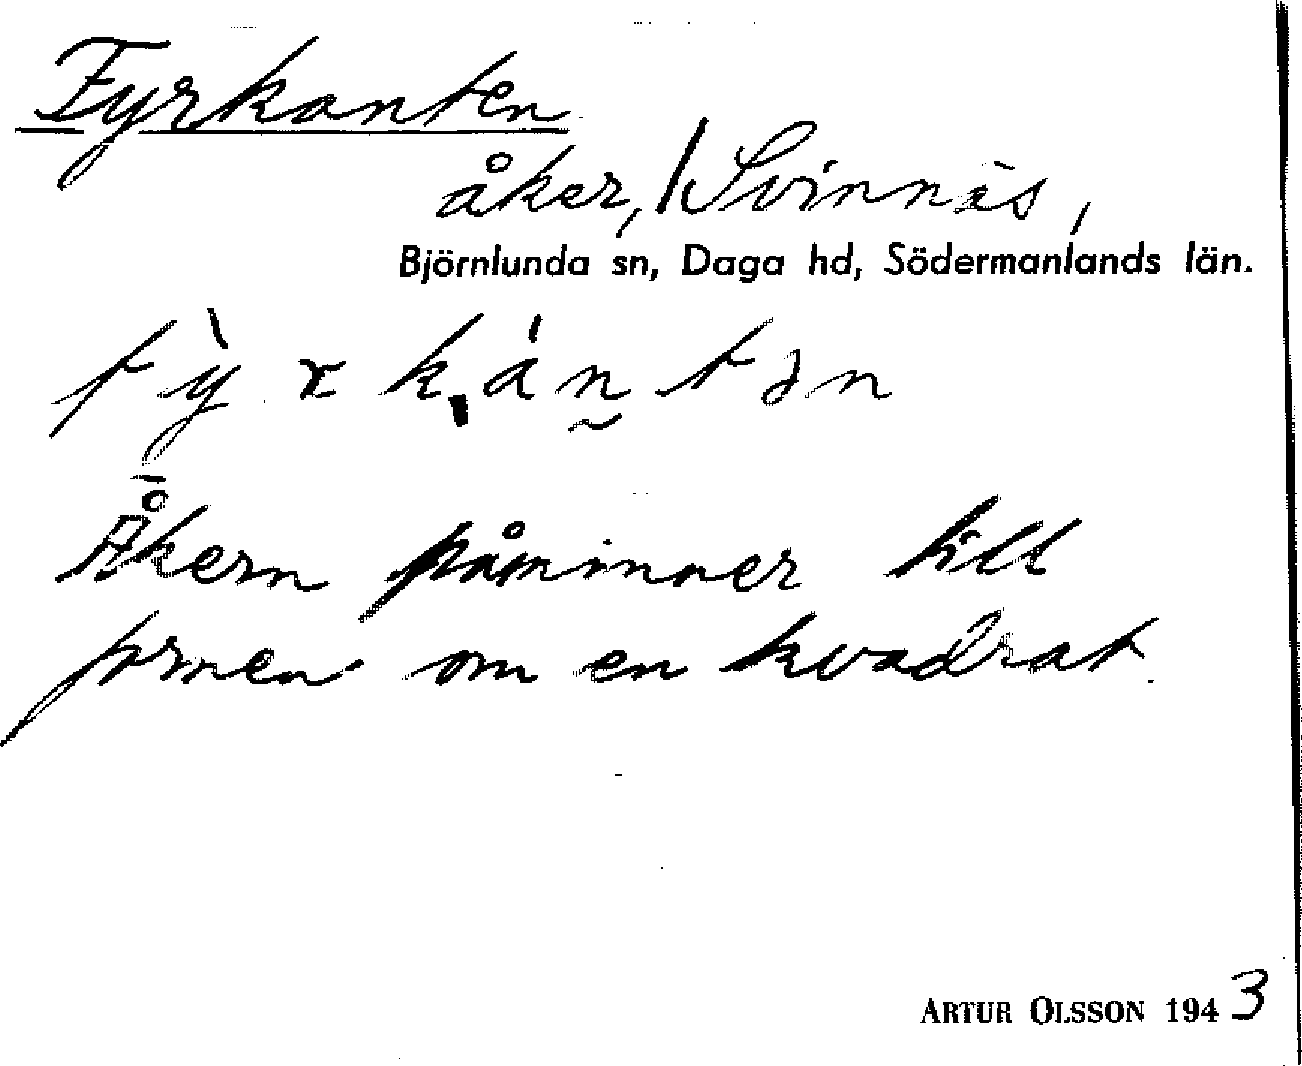 Fyrkanten
åker, / Svinnäs,
Björnlunda sn, Daga hd, Södermanlands län.
fy̌̀rkánt̰ən
Åkern påminner till
formen om en kvadrat.
ARTUR OLSSON 1943